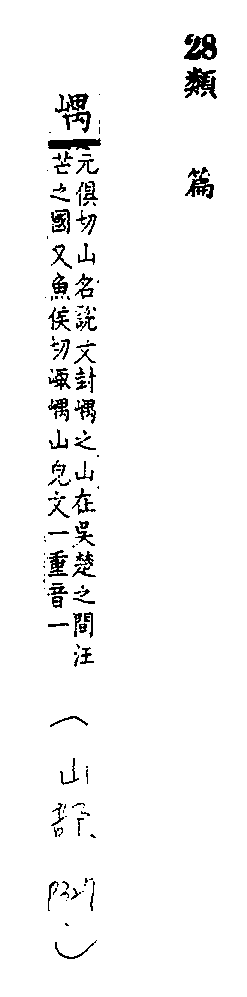 28類篇
嵎
元俱切山名說文封嵎之山在吳楚之間汪
芒之國又魚侯切㟴嵎山皃文一重音一
(山部、P327)